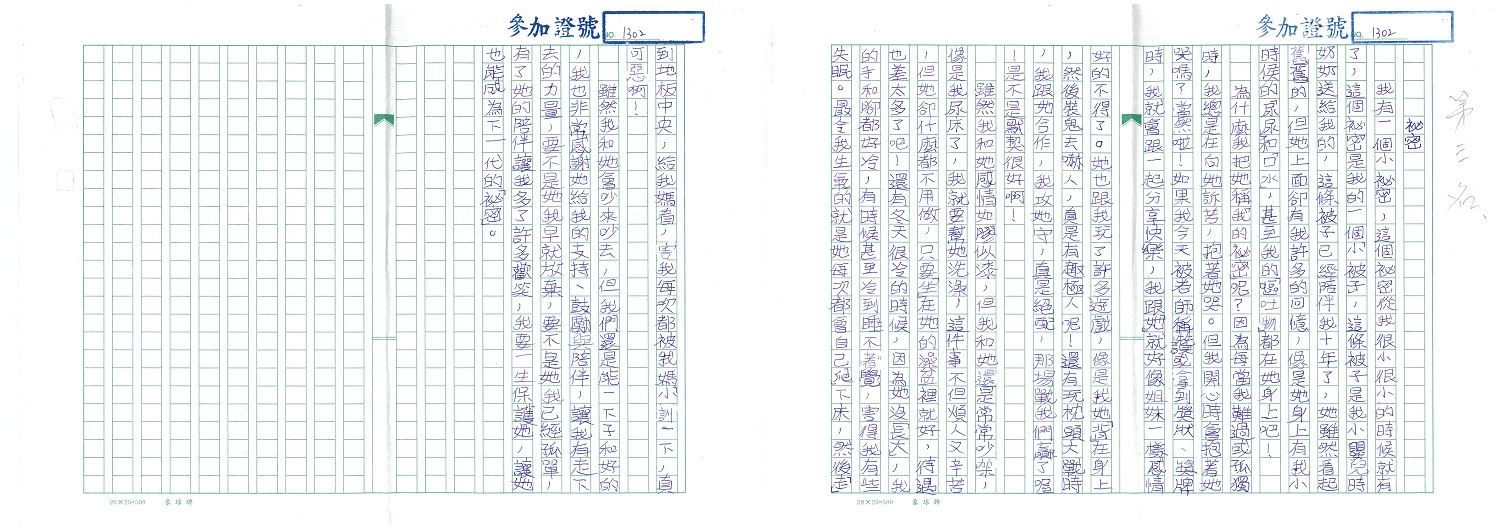 參加證號
NO. 1302
第三名、
祕密
我有一個小祕密，這個祕密從我很小很小的時候就有
了，這個祕密是我的一個小被子，這條被子是我小嬰兒時
奶奶送給我的，這條被子已經陪伴我十年了，她雖然看起
舊舊的，但她上面卻有我許多的回憶，像是她身上有我小
時侯的「尿尿」和「口水」，甚至我的「嘔吐物」都在她身上吧！
為什麼我把她稱「我的祕密」呢？因為每當我難過或孤獨
時，我總是在向她訴苦，抱著她哭。但我開心時會抱著她
哭嗎？當然啦！如果我今天被老師稱讚或拿到獎狀、獎牌
時，我就會跟一起分享快樂，我跟「她」就好像姐妹一樣感情
好的不得了。她也跟我玩了許多遊戲，像是我她「背」在身上
，然後裝鬼去嚇人，真是有趣極人呢！還有玩枕頭大戰時
，我跟她合作，我攻她守，真是絕配，那場戰我們贏了喔
！是不是默契很好啊！
雖然我和她感情如膠似漆，但我和她還是常常吵架，
像是我尿床了，我就要幫她洗澡，這件事不但煩人又辛苦
，但她卻什麼都不用做，只要「坐」在她的澡盆裡就好，待遇
也差太多了吧！還有冬天很冷的時候，因為她沒「長大」，我
的手和腳都好冷，有時候甚至冷到睡不著覺，害得我有些
失眠。最令我生氣的就是她每次都會自己「爬」下床，然後「走」
參加證號
NO. 1302
到地板中央，給我媽看，害我每次都被我媽「小」訓一下，真
可惡啊！
雖然我和她會吵來吵去，但我們還是能一下子和好的
，我也非常感謝她給我的支持、鼓勵與陪伴，讓我有走下
去的力量，要不是她我早就放棄，要不是她我已經孤單，
有了她的陪伴讓我多了許多歡笑，我要一生保護她，讓她
也能成為下一代的「祕密」。
20×25=500 象球牌
20×25=500 象球牌